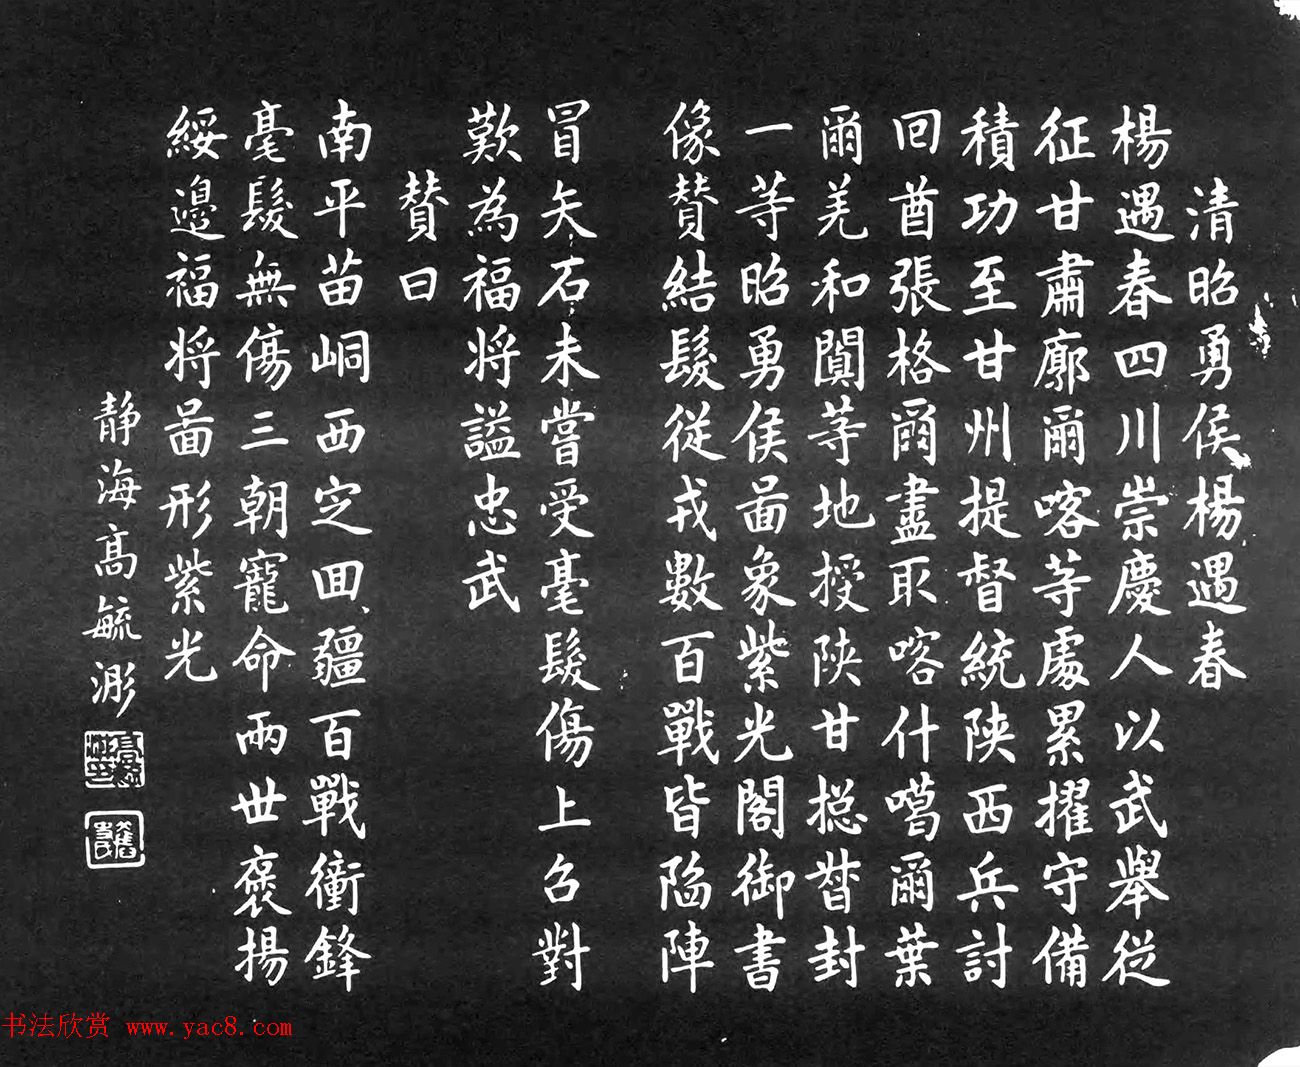 清昭勇侯楊遇春
楊遇春四川崇慶人以武舉從
征甘肅廓爾喀等處累擢守備
積功至甘州提督統陝西兵討
回酋張格爾盡取喀什噶爾葉
爾羌和闐等地授陝甘揔督封
一等昭勇侯畵象紫光閣御書
像贊結髮從戎數百戰皆陷陣
冒矢石未嘗受毫髮傷上召對
歎為福將謚忠武
贊曰
南平苗峒西定回疆百戰衝鋒
毫髮無傷三朝寵命兩世褒揚
綏邊福將畵形紫光
静海高毓浵
书法欣赏 www.yac8.com